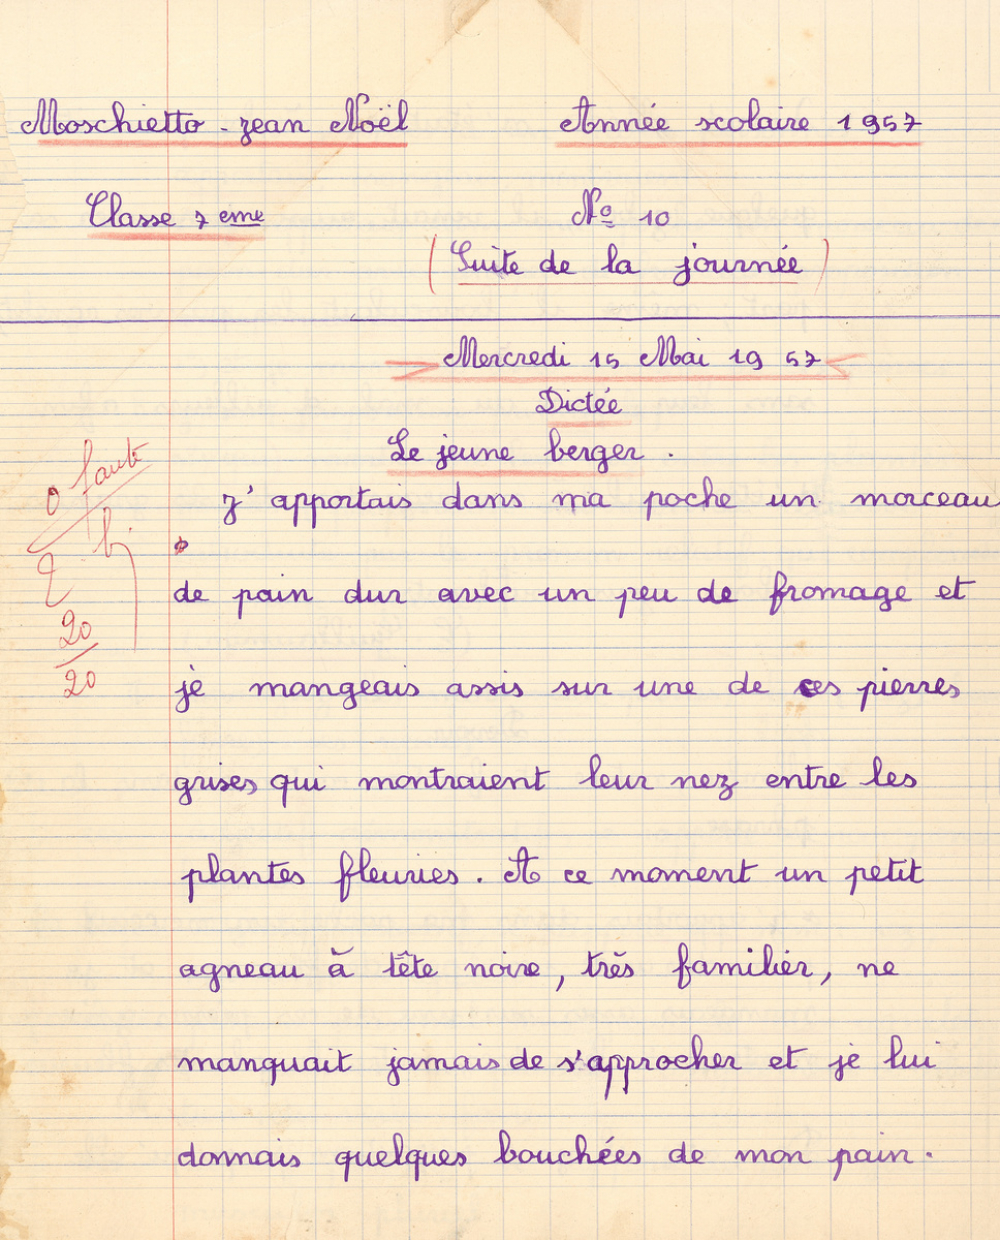 Moschietto - Jean Noël
Année scolaire 1957
Classe 7 eme
No 10
(Suite de la journée)
Mercredi 15 Mai 1957
Dictée
Le jeune berger.
0 faute
20
20
J'apportais dans ma poche un morceau
de pain dur avec un peu de fromage et
je mangeais assis sur une de ces pierres
grises qui montraient leur nez entre les
plantes fleuries. A ce moment un petit
agneau à tête noire, très familier, ne
manquait jamais de s'approcher et je lui
donnais quelques bouchées de mon pain.